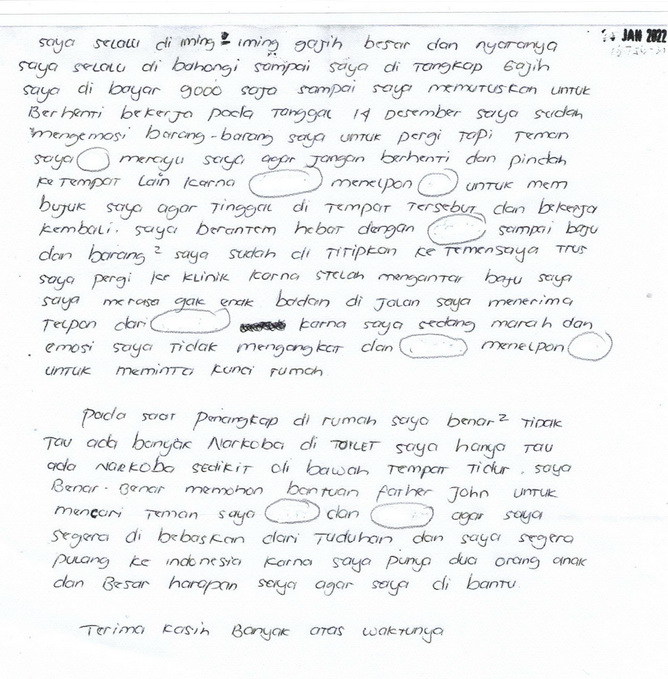 JAN 2022
saya selalu di iming² iming gajih besar dan nyatanya
saya selalu di bahongi sampai saya di Tangkap Gajih
saya di bayar 9000 saja sampai saya memutuskan untuk
Berhenti bekerja pada Tanggal 14 Desember saya sudah
mengemasi barang-barang saya untuk pergi Tapi Teman
saya merayu saya agar jangan berhenti dan pindah
ke Tempat Lain karna menelpon untuk mem
bujuk saya agar Tinggal di Tempat Tersebut dan bekerja
kembali. saya berantem hebat dengan sampai baju
dan barang² saya sudah di Titipkan ke Temensaya Trus
saya pergi ke Klinik karna stelah mengantar baju saya
saya merasa gak enak badan di jalan saya menerima
Telpon dari karna saya sedang marah dan
emosi saya Tidak mengangkat dan menelpon
untuk meminta kunci rumah
Pada saat Penangkap di rumah saya benar² Tidak
Tau ada banyak Narkoba di TOILET saya hanya Tau
ada Narkoba sedikit di bawah Tempat Tidur. saya
Benar-Benar memohon bantuan father John untuk
mencari Teman saya dan agar saya
segera di bebaskan dari Tuduhan dan saya segera
pulang ke indonesia karna saya punya dua orang anak
dan Besar harapan saya agar saya di bantu
Terima kasih Banyak atas waktunya